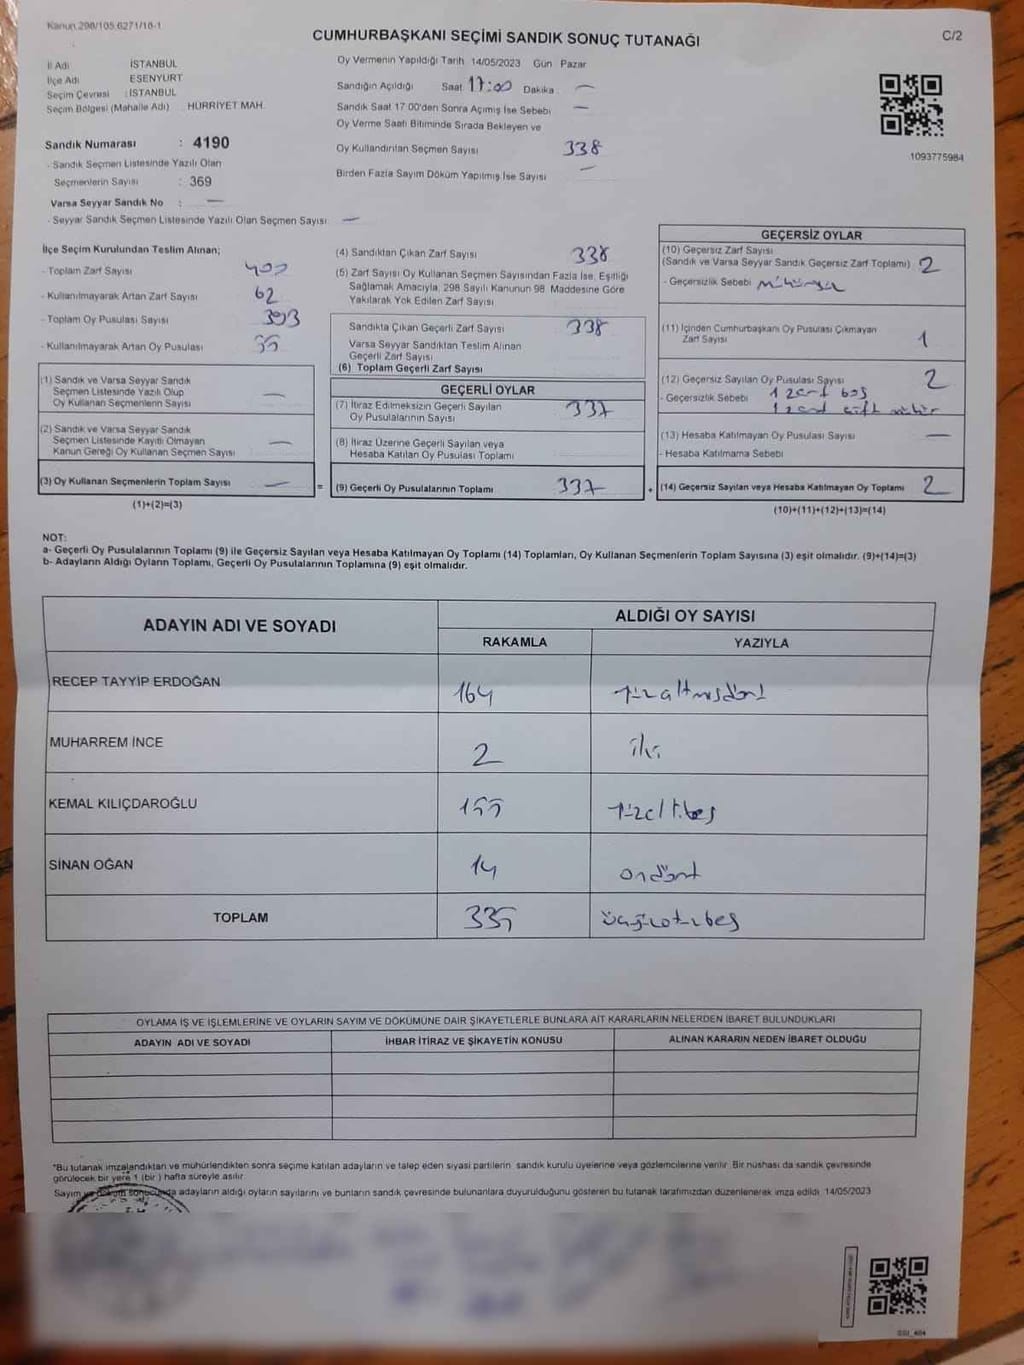 Kanun 298/105 6271/16-1
CUMHURBAŞKANI SEÇİMİ SANDIK SONUÇ TUTANAĞI
C/2
İl Adı : İSTANBUL
İlçe Adı : ESENYURT
Seçim Çevresi : İSTANBUL
Seçim Bölgesi (Mahalle Adı) : HÜRRİYET MAH.
Sandık Numarası : 4190
- Sandık Seçmen Listesinde Yazılı Olan
Seçmenlerin Sayısı : 369
Varsa Seyyar Sandık No : —
- Seyyar Sandık Seçmen Listesinde Yazılı Olan Seçmen Sayısı : —
Oy Vermenin Yapıldığı Tarih 14/05/2023 Gün Pazar
Sandığın Açıldığı Saat 17:00 Dakika : —
Sandık Saat 17 00'den Sonra Açılmış İse Sebebi : —
Oy Verme Saati Bitiminde Sırada Bekleyen ve
Oy Kullandırılan Seçmen Sayısı 338
Birden Fazla Sayım Döküm Yapılmış İse Sayısı —
1093775984
İlçe Seçim Kurulundan Teslim Alınan;
- Toplam Zarf Sayısı 400
- Kullanılmayarak Artan Zarf Sayısı 62
- Toplam Oy Pusulası Sayısı 393
- Kullanılmayarak Artan Oy Pusulası 55
(1) Sandık ve Varsa Seyyar Sandık
Seçmen Listesinde Yazılı Olup
Oy Kullanan Seçmenlerin Sayısı —
(2) Sandık ve Varsa Seyyar Sandık
Seçmen Listesinde Kayıtlı Olmayan
Kanun Gereği Oy Kullanan Seçmen Sayısı —
(3) Oy Kullanan Seçmenlerin Toplam Sayısı —
(1)+(2)=(3)
(4) Sandıktan Çıkan Zarf Sayısı 338
(5) Zarf Sayısı Oy Kullanan Seçmen Sayısından Fazla İse, Eşitliği
Sağlamak Amacıyla, 298 Sayılı Kanunun 98. Maddesine Göre
Yakılarak Yok Edilen Zarf Sayısı
Sandıkta Çıkan Geçerli Zarf Sayısı 338
Varsa Seyyar Sandıktan Teslim Alınan
Geçerli Zarf Sayısı
(6) Toplam Geçerli Zarf Sayısı
GEÇERLİ OYLAR
(7) İtiraz Edilmeksizin Geçerli Sayılan
Oy Pusulalarının Sayısı 337
(8) İtiraz Üzerine Geçerli Sayılan veya
Hesaba Katılan Oy Pusulası Toplamı
= (9) Geçerli Oy Pusulalarının Toplamı 337
GEÇERSİZ OYLAR
(10) Geçersiz Zarf Sayısı
(Sandık ve Varsa Seyyar Sandık Geçersiz Zarf Toplamı) 2
- Geçersizlik Sebebi
(11) İçinden Cumhurbaşkanı Oy Pusulası Çıkmayan
Zarf Sayısı 1
(12) Geçersiz Sayılan Oy Pusulası Sayısı 2
- Geçersizlik Sebebi 1 zarf boş
1 zarf çift mühür
(13) Hesaba Katılmayan Oy Pusulası Sayısı —
- Hesaba Katılmama Sebebi
+ (14) Geçersiz Sayılan veya Hesaba Katılmayan Oy Toplamı 2
(10)+(11)+(12)+(13)=(14)
NOT:
a- Geçerli Oy Pusulalarının Toplamı (9) ile Geçersiz Sayılan veya Hesaba Katılmayan Oy Toplamı (14) Toplamları, Oy Kullanan Seçmenlerin Toplam Sayısına (3) eşit olmalıdır. (9)+(14)=(3)
b- Adayların Aldığı Oyların Toplamı, Geçerli Oy Pusulalarının Toplamına (9) eşit olmalıdır.
ADAYIN ADI VE SOYADI
ALDIĞI OY SAYISI
RAKAMLA YAZIYLA
RECEP TAYYİP ERDOĞAN 164 yüzaltmışdört
MUHARREM İNCE 2 iki
KEMAL KILIÇDAROĞLU 155 yüzellibeş
SİNAN OĞAN 14 ondört
TOPLAM 335 üçyüzotuzbeş
OYLAMA İŞ VE İŞLEMLERİNE VE OYLARIN SAYIM VE DÖKÜMÜNE DAİR ŞİKAYETLERLE BUNLARA AİT KARARLARIN NELERDEN İBARET BULUNDUKLARI
ADAYIN ADI VE SOYADI İHBAR İTİRAZ VE ŞİKAYETİN KONUSU ALINAN KARARIN NEDEN İBARET OLDUĞU
*Bu tutanak imzalandıktan ve mühürlendikten sonra seçime katılan adayların ve talep eden siyasi partilerin sandık kurulu üyelerine veya gözlemcilerine verilir. Bir nüshası da sandık çevresinde
görülecek bir yere 1 (bir ) hafta süreyle asılır.
Sayım ve döküm sonucunda adayların aldığı oyların sayılarını ve bunların sandık çevresinde bulunanlara duyurulduğunu gösteren bu tutanak tarafımızdan düzenlenerek imza edildi. 14/05/2023